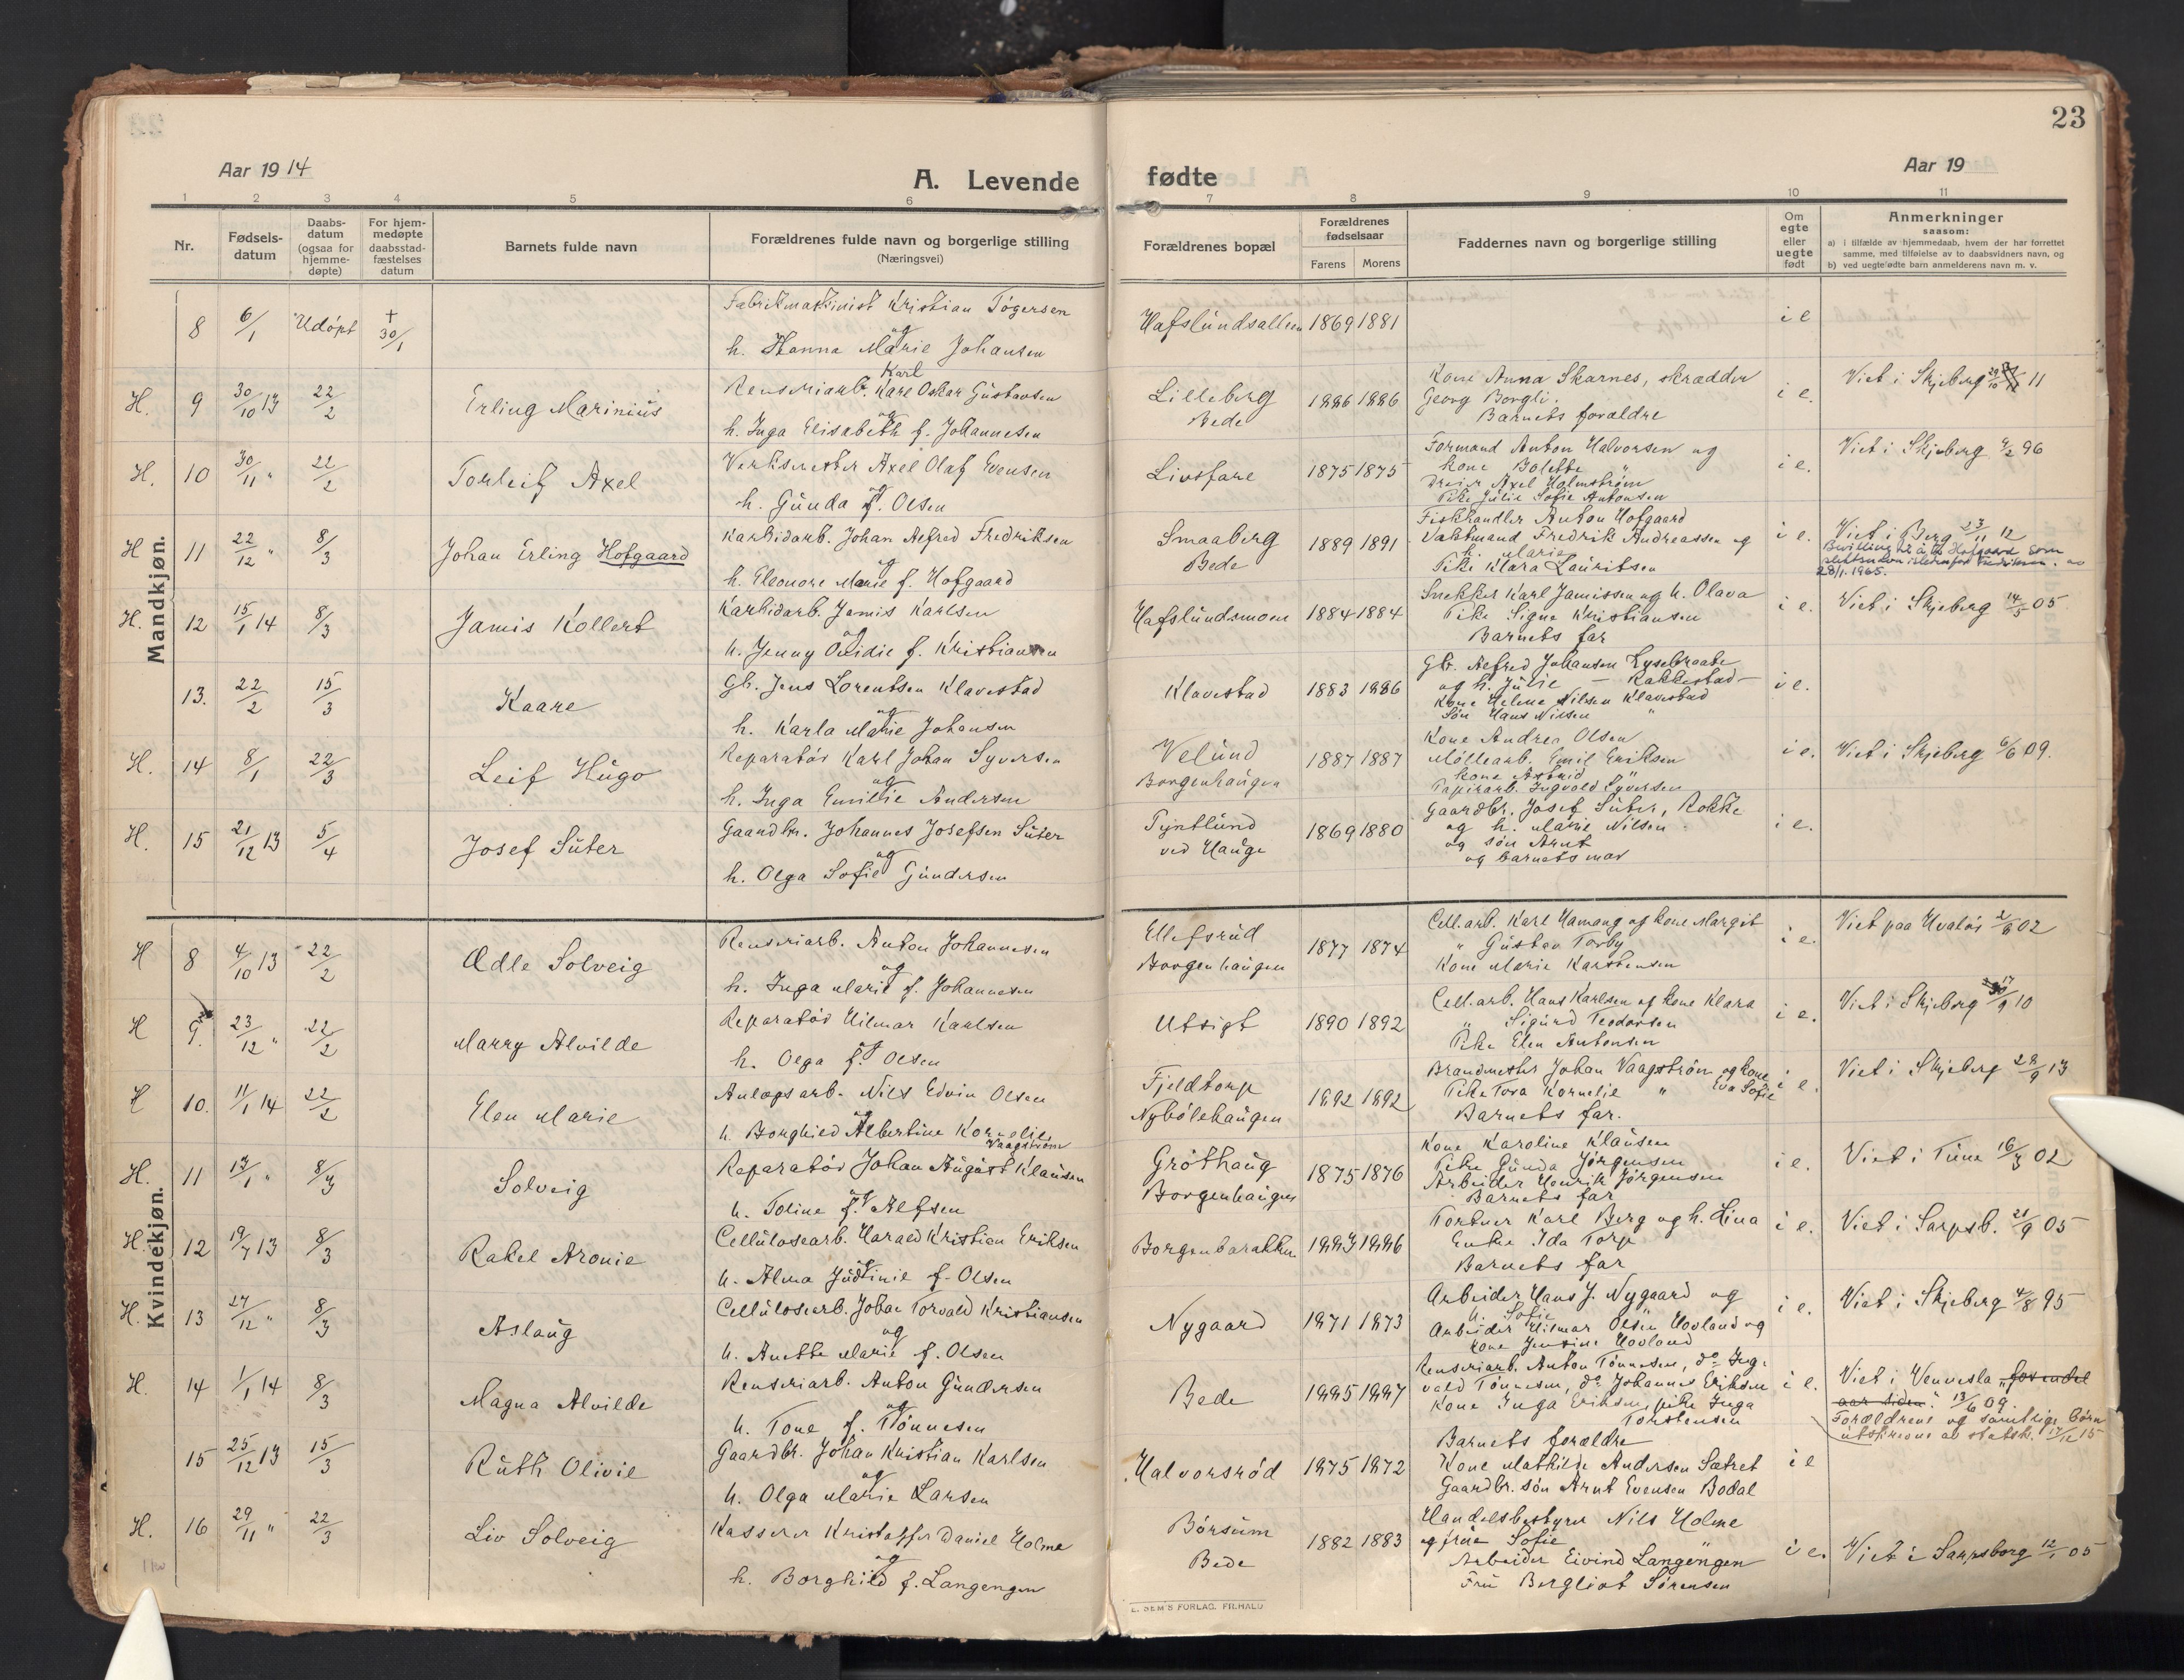 23
Aar 1914
A. Levende
fødte
Aar 19
1 2 3 4 5 6 7 8 9 10 11
Nr.
Fødsels-
datum
Daabs-
datum
(ogsaa for
hjemme-
døpte)
For hjem-
medøpte
daabsstad-
fæstelses
datum
Barnets fulde navn
Forældrenes fulde navn og borgerlige stilling
(Næringsvei)
Forældrenes bopæl
Forældrenes
fødselsaar
Farens Morens
Faddernes navn og borgerlige stilling
Om
egte
eller
uegte
født
Anmerkninger
saasom:
a) i tilfælde av hjemmedaab, hvem der har forrettet
samme, med tilføielse av to daabsvidners navn, og
b) ved uegte fødte barn anmelderens navn m. v.
Mandkjøn.
8 6/1 Udöpt † 30/1
Fabrikmaskinist Kristian Tögersen
og
h. Hanna Marie Johansen
Hafslundsalleen 1869 1881
i e
H. 9 30/10 13 22/2 Erling Marinius
Karl
Renseriarb. Karl Oskar Gustavsen
og
h. Inga Elisabeth f. Johannesen
Lilleberg
Bede
1886 1886
Kone Anna Skarnes, skrædder
Georg Borgli.
Barnets forældre
i e.
Viet i Skjeberg 29/10 11
H. 10 30/11 " 22/2 Torleif Axel
Verksmester Axel Olaf Evensen
og
h. Gunda f. Olsen
Livsfare
1875 1875
Formand Anton Halvorsen og
kone Bolette "
Dreier Axel Holmström
Pike Julie Sofie Antonsen
i e.
Viet i Skjeberg 4/2 96
H 11 22/12 " 8/3 Johan Erling Hofgaard
Karbidarb. Johan Alfred Fredriksen
og
h. Eleonore Marie f. Hofgaard
Smaaberg
Bede
1889 1891
Fiskhandler Anton Hofgaard
Vaktmand Fredrik Andreassen og
h. Marie
Pike Klara Lauritsen
i e.
Viet i Berg 23/11 12
Bevilling til å ta Hofgaard som
slektsnavn istedenfor Fredriksen. av
28/1.1965.
H. 12 15/1 14 8/3 Jamis Kollert
Karbidarb. Jamis Karlsen
og
h. Jenny Ovidie f. Kristiansen
Hafslundsmoen 1884 1884
Snekker Karl Jamissen og h. Olava
Pike Signe Kristiansen
Barnets far
i e.
Viet i Skjeberg 14/5 05
13. 22/2 15/3 Kaare
Gb. Jens Lorentsen Klavestad
og
h. Karla Marie Johansen
Klavestad 1883 1886
Gb. Alfred Johansen Lyselbraate
og h. Julie – Rakkestad –
Kone Helene Nilsen Klavestad
Sön Hans Nilsen "
i e.
H. 14 8/1 22/3 Leif Hugo
Reparatör Karl Johan Syversen
og
h. Inga Emilie Andersen
Velund
Borgenhaugen
1887 1887
Kone Andrea Olsen
Möllearb. Emil Eriksen
kone Astrid "
Papirarb. Ingvald Syversen
i e.
Viet i Skjeberg 6/6 09.
H. 15 21/12 13 5/4 Josef Suter
Gaardbr. Johannes Josefsen Suter
og
h. Olga Sofie Gundersen
Tyntlund
ved Hauge
1869 1880
Gaardbr. Josef Suter, Rokke
og h. Marie Nilsen
og sön Arnt
og barnets mor
i e.
Kvindekjøn.
H 8 4/10 13 22/2 Ædle Solveig
Renseriarb. Anton Johannesen
og
h. Inga Marie f. Johannesen
Ellefsrud
Borgenhaugen
1877 1874
Cell.arb. Karl Hamang og kone Margit
" Gustav Torby
Kone Marie Karstensen
i e.
Viet paa Hvaler 2/8 02
H 9. 23/12 " 22/2 Marry Alvilde
Reparatör Hilmar Karlsen
og
h. Olga f. Olsen
Utsigt 1890 1892
Cell.arb. Hans Karlsen og kone Klara
" Sigurd Teodorsen
Pike Elen Antonsen
i e.
Viet i Skjeberg 17/9 10
H 10. 11/1 14 22/2 Elen Marie
Anlægsarb. Nils Edvin Olsen
og
h. Borghild Albertine Kornelie
Vaagström
Fjeldtorp
Nybölehaugen
1892 1892
Brandmester Johan Vaagström og kone
Pike Tora Kornelie " Eva Sofie
Barnets far.
i e.
Viet i Skjeberg 28/9 13
H. 11 13/1 " 8/3 Solveig
Reparatör Johan August Klausen
og
h. Toline f. Alfsen
Gröthaug
Borgenhaugen
1875 1876
Kone Karoline Klausen
Pike Gunda Jörgensen
Arbeider Henrik Jörgensen
Barnets far
i e.
Viet i Tune 16/3 02
H. 12 19/7 13 8/3 Rakel Aronie
Cellulosearb. Harald Kristian Eriksen
og
h. Alma Judtinie f. Olsen
Borgenbarakken 1883 1886
Tortner Karl Berg og h. Lina
Enke Ida Torp
Barnets far
i e.
Viet i Sarpsb. 21/9 05
H. 13 27/12 " 8/3 Aslaug
Cellulosearb. Johan Torvald Kristiansen
og
h. Anette Marie f. Olsen
Nygaard 1871 1873
Arbeider Hans J. Nygaard og
h. Sofie
Arbeider Hilmar Olsen Hovland og
kone Jensine Hovland
i e.
Viet i Skjeberg 4/8 95
H. 14 1/1 14 8/3 Magna Alvilde
Renseriarb. Anton Gundersen
og
h. Tone f. Tönnesen
Bede 1885 1887
Renseriarb. Anton Tönnesen, do Ing-
vald Tönnesen, do Johannes Eriksen
Kone Inga Eriksen, pike Inga
Torstensen
i e.
Viet i Vennesla "for endel
aar siden". 13/6 09.
Forældrene og samtlige börn
utskrevne av statsk. 17/12 15
15 25/12 13 15/3 Ruth Olivie
Gaardbr. Johan Kristian Karlsen
og
h. Olga Marie Larsen
Halvorsröd 1875 1872
Barnets forældre
Kone Mathilde Andersen Sætret
Gaardbr. sön Arnt Evensen Bodal
i e
H. 16 29/11 " 22/3 Liv Solveig
Kasserer Kristoffer Daniel Holme
og
h. Borghild f. Langengen
Börsum
Bede
1882 1883
Handelsbestyrer Nils Holme
og frue Sofie "
Arbeider Eivind Langengen
Fru Bergliot Sörensen
i e.
Viet i Sarpsborg 12/1 05
E. SEM'S FORLAG. FR.HALD